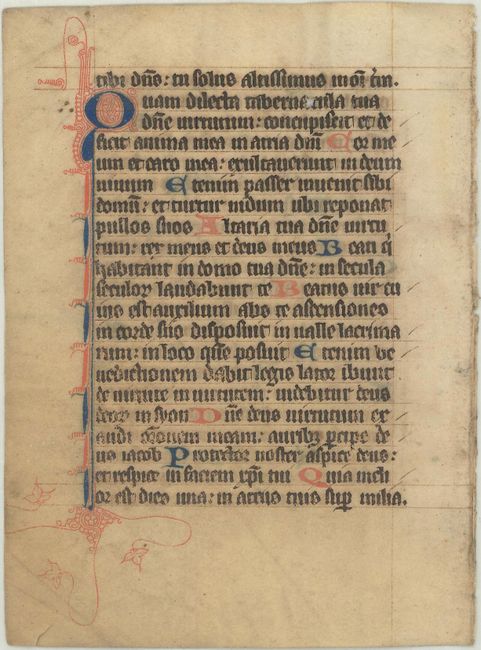 tibi dn̄s: tu solus altissimus in om̄ t̄m.
Quam dilecta tabernacula tua
dn̄e uirtutum: concupiscit et de
ficit anima mea in atria dn̄i Cor me
um et caro mea: exultauerunt in deum
uiuum Etenim passer inuenit sibi
domū: et turtur nidum ubi reponat
pullos suos Altaria tua dn̄e uirtu
tum: rex meus et deus meus Beati q̇
habitant in domo tua dn̄e: in secula
seculoꝝ laudabunt te Beatus uir cu
ius est auxilium abs te ascensiones
in corde suo disposuit in ualle lacrima
rum: in loco quē posuit Etenim be
nedictionem dabit legis lator ibunt
de uirtute in uirtutem: uidebitur deus
deoꝝ in syon Dn̄e deus uirtutum ex
audi or̄onem meam: auribꝫ ꝑcipe de
us iacob Protector noster aspice deus:
et respice in faciem xp̄i tui Quia meli
or est dies una: in atriis tuis suꝑ milia.